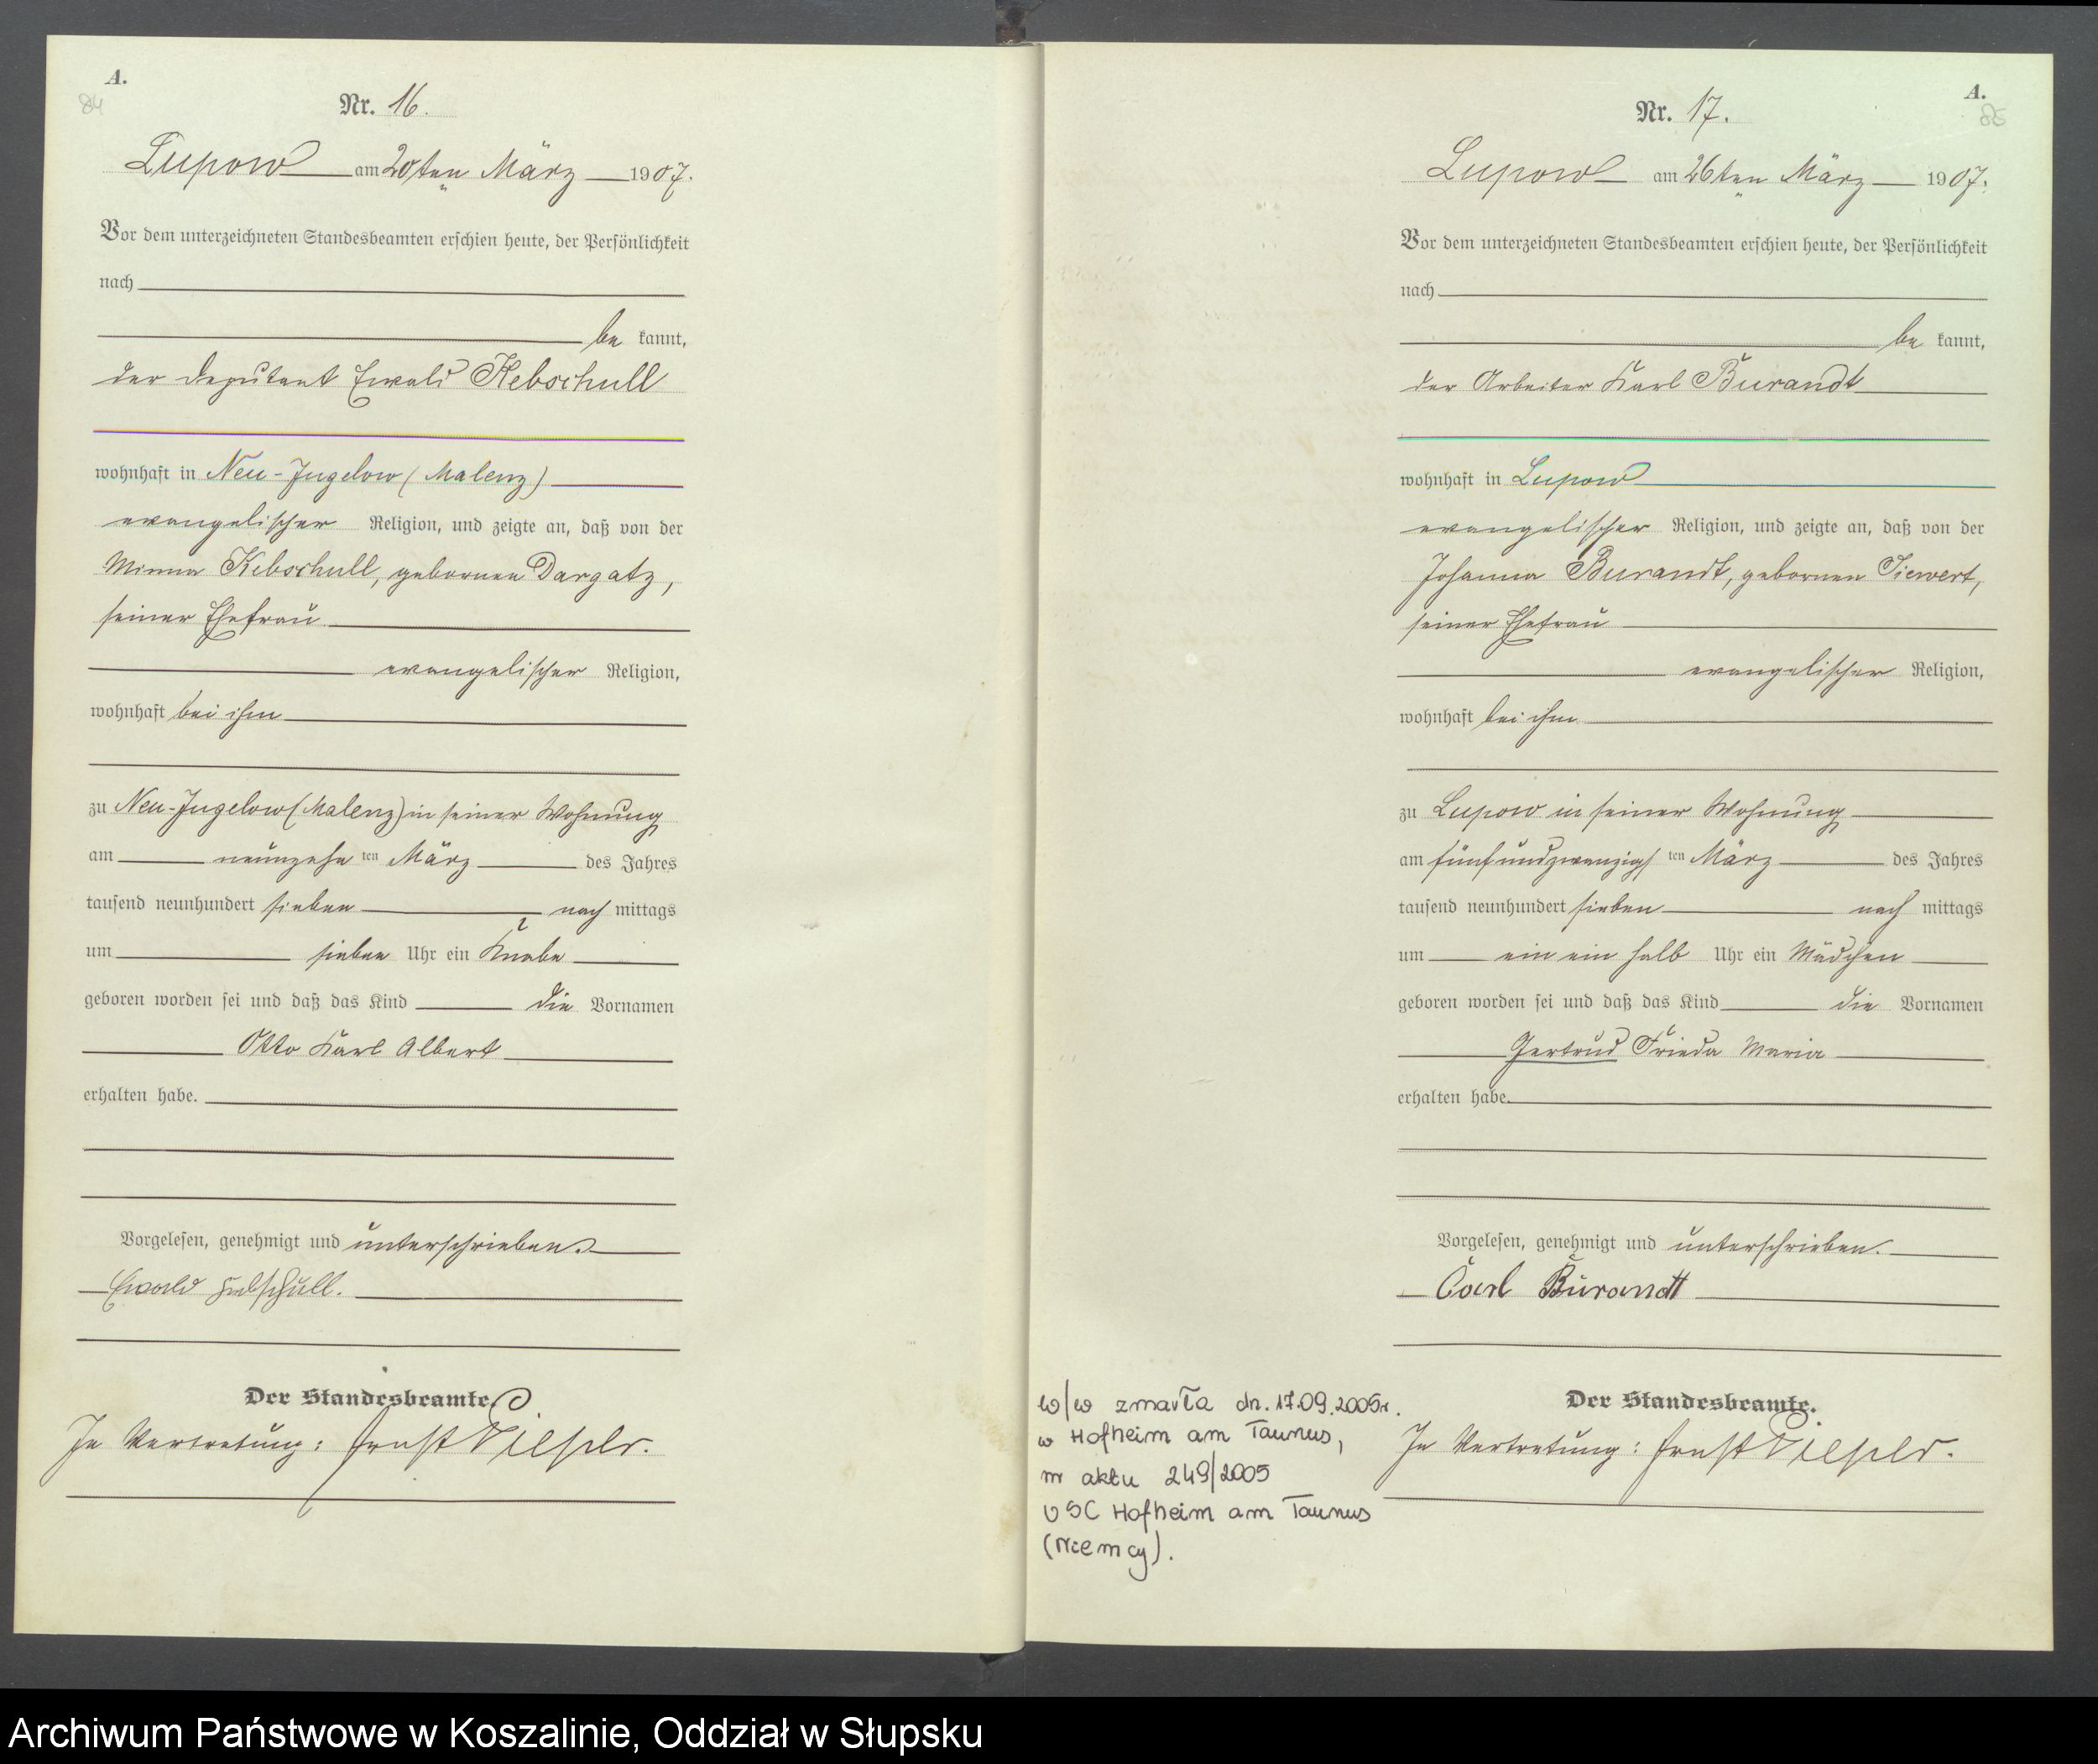 A.
84
Nr. 16.
Lupow am 20ten März 1907.
Vor dem unterzeichneten Standesbeamten erschien heute, der Persönlichkeit
nach
be kannt,
der Deputant Ewald Kebschull
wohnhaft in Neu-Jugelow (Malenz)
evangelischer Religion, und zeigte an, daß von der
Minna Kebschull, geborenen Dargatz,
seiner Ehefrau
evangelischer Religion,
wohnhaft bei ihm
zu Neu-Jugelow (Malenz) in seiner Wohnung
am neunzehn ten März des Jahres
tausend neunhundert sieben nach mittags
um sieben Uhr ein Knabe
geboren worden sei und daß das Kind die Vornamen
Otto Karl Albert
erhalten habe.
Vorgelesen, genehmigt und unterschrieben.
Ewald Kebschull.
Der Standesbeamte.
In Vertretung: Ernst
A.
85
Nr. 17.
Lupow am 26ten März 1907.
Vor dem unterzeichneten Standesbeamten erschien heute, der Persönlichkeit
nach
be kannt,
der Arbeiter Karl Burandt
wohnhaft in Lupow
evangelischer Religion, und zeigte an, daß von der
Johanna Burandt, geborenen Siewert,
seiner Ehefrau
evangelischer Religion,
wohnhaft bei ihm
zu Lupow in seiner Wohnung
am fünfundzwanzigs ten März des Jahres
tausend neunhundert sieben nach mittags
um ein ein halb Uhr ein Mädchen
geboren worden sei und daß das Kind die Vornamen
Gertrud Frieda Maria
erhalten habe.
Vorgelesen, genehmigt und unterschrieben.
Carl Burandt
Der Standesbeamte.
In Vertretung: Ernst
w/w zmarła dn. 17.09.2005r.
w Hofheim am Taunus,
nr aktu 249/2005
USC Hofheim am Taunus
(Niemcy).
Archiwum Państwowe w Koszalinie, Oddział w Słupsku